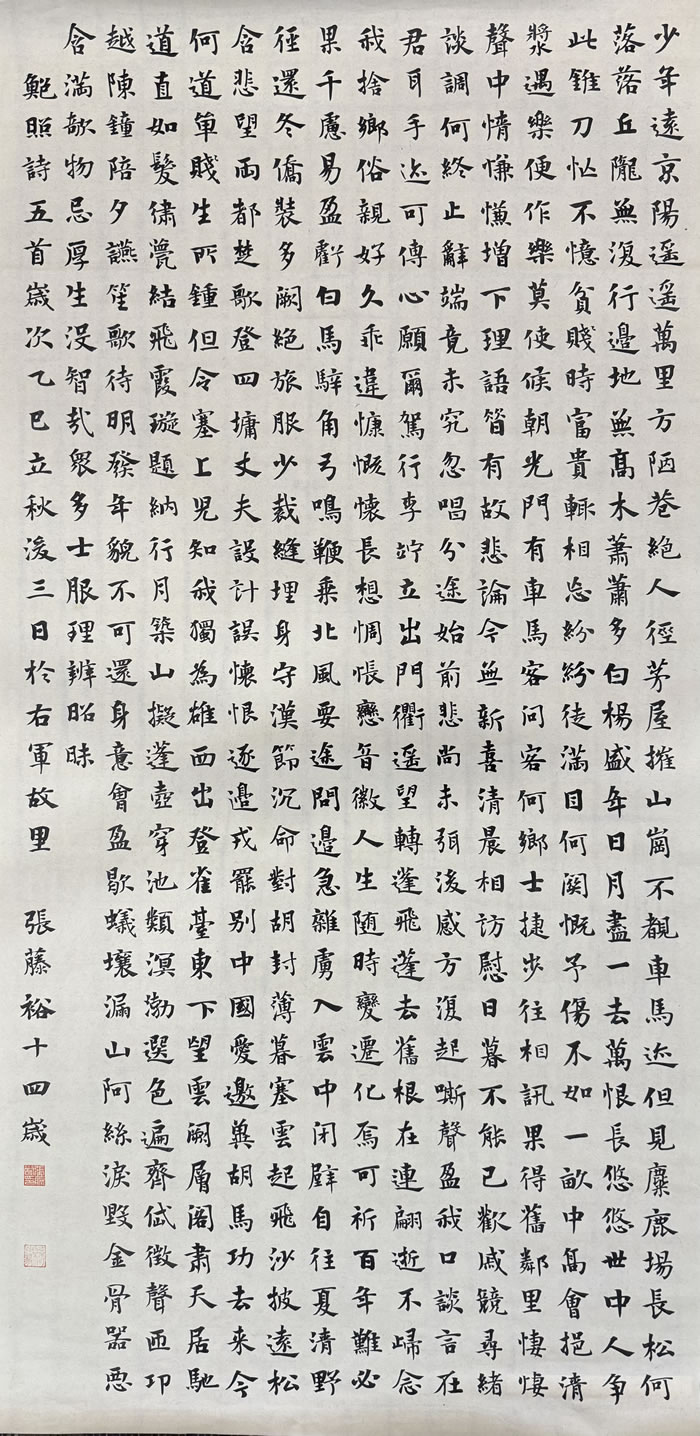 少年遠京陽遥遥萬里方陋巷絕人徑茅屋摧山崗不覩車馬迹但見麋鹿場長松何
落落丘隴無復行邊地無髙木蕭蕭多白楊盛年日月盡一去萬恨長悠悠世中人争
此錐刀忙不憶貧賤時富貴輒相忘紛紛徒滿目何関慨予傷不如一畝中髙會挹清
漿遇樂便作樂莫使候朝光門有車馬客問客何鄉士捷步往相訊果得舊鄰里悽悽
聲中情慊慊增下理語昝有故悲論今無新喜清晨相訪慰日暮不能已歡戚競尋緒
談調何終止辭端竟未究忽唱分途始前悲尚未弭後感方復起嘶聲盈我口談言在
君耳手迹可傳心願爾駕行李竚立出門衢遥望轉蓬飛蓬去舊根在連翩逝不歸念
我捨鄉俗親好久乖違慷慨懷長想惆悵戀音徽人生随時變遷化焉可祈百年難必
果千慮易盈虧白馬騂角弓鳴鞭乘北風要途問邊急雜虜入雲中闭壁自往夏清野
徑還冬僑裝多闕絕旅服少裁縫埋身守漢節沉命對胡封薄暮塞雲起飛沙披遠松
含悲望兩都楚歌登四墉丈夫設計誤懷恨逐邉戎罷别中國愛邀冀胡馬功去来今
何道单賤生所鍾但令塞上兒知我獨為雄西出登雀臺東下望雲闕層阁肅天居馳
道直如髮繡甍結飛霞璇題納行月築山擬蓬壺穿池類溟渤選色遍齊代徵聲匝卭
越陳鐘陪夕讌笙歌待明發年貌不可還身意會盈歇蟻壤漏山阿絲淚毀金骨器惡
含滿欹物忌厚生沒智哉衆多士服理辨昭昧
鮑照詩五首嵗次乙巳立秋後三日於右軍故里 張藤裕十四嵗